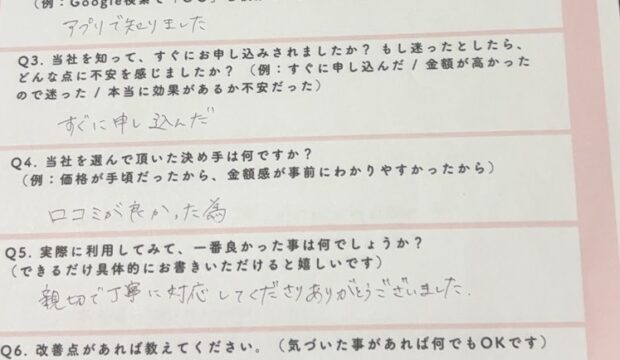 (例：Google検索で「
アプリで知りました
Q3. 当社を知って、すぐにお申し込みされましたか？ もし迷ったとしたら、
どんな点に不安を感じましたか？ (例：すぐに申し込んだ / 金額が高かった
ので迷った / 本当に効果があるか不安だった)
すぐに申し込んだ
Q4. 当社を選んで頂いた決め手は何ですか？
(例：価格が手頃だったから、金額感が事前にわかりやすかったから)
口コミが良かった為
Q5. 実際に利用してみて、一番良かった事は何でしょうか？
(できるだけ具体的にお書きいただけると嬉しいです)
親切で丁寧に対応してくださりありがとうございました.
Q6. 改善点があれば教えてください。(気づいた事があれば何でもOKです)